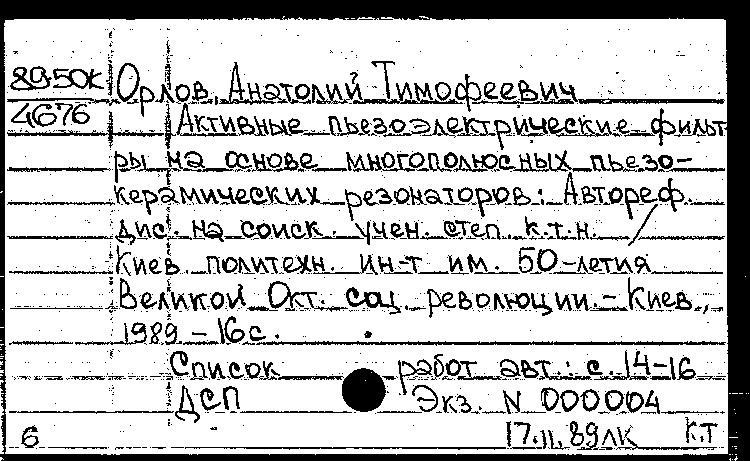 89-50К Орлов, Анатолий Тимофеевич
4676 Активные пьезоэлектрические фильт
ры на основе многополюсных пьезо-
керамических резонаторов: Автореф.
дис. на соиск. учен. степ. к.т.н. /
Киев. политехн. ин-т им. 50-летия
Великой Окт. соц. революции. - Киев,
1989 - 16 с.
Список работ авт.: с. 14-16
ДСП Экз. N 000004
6 17.11.89ЛК К.Т